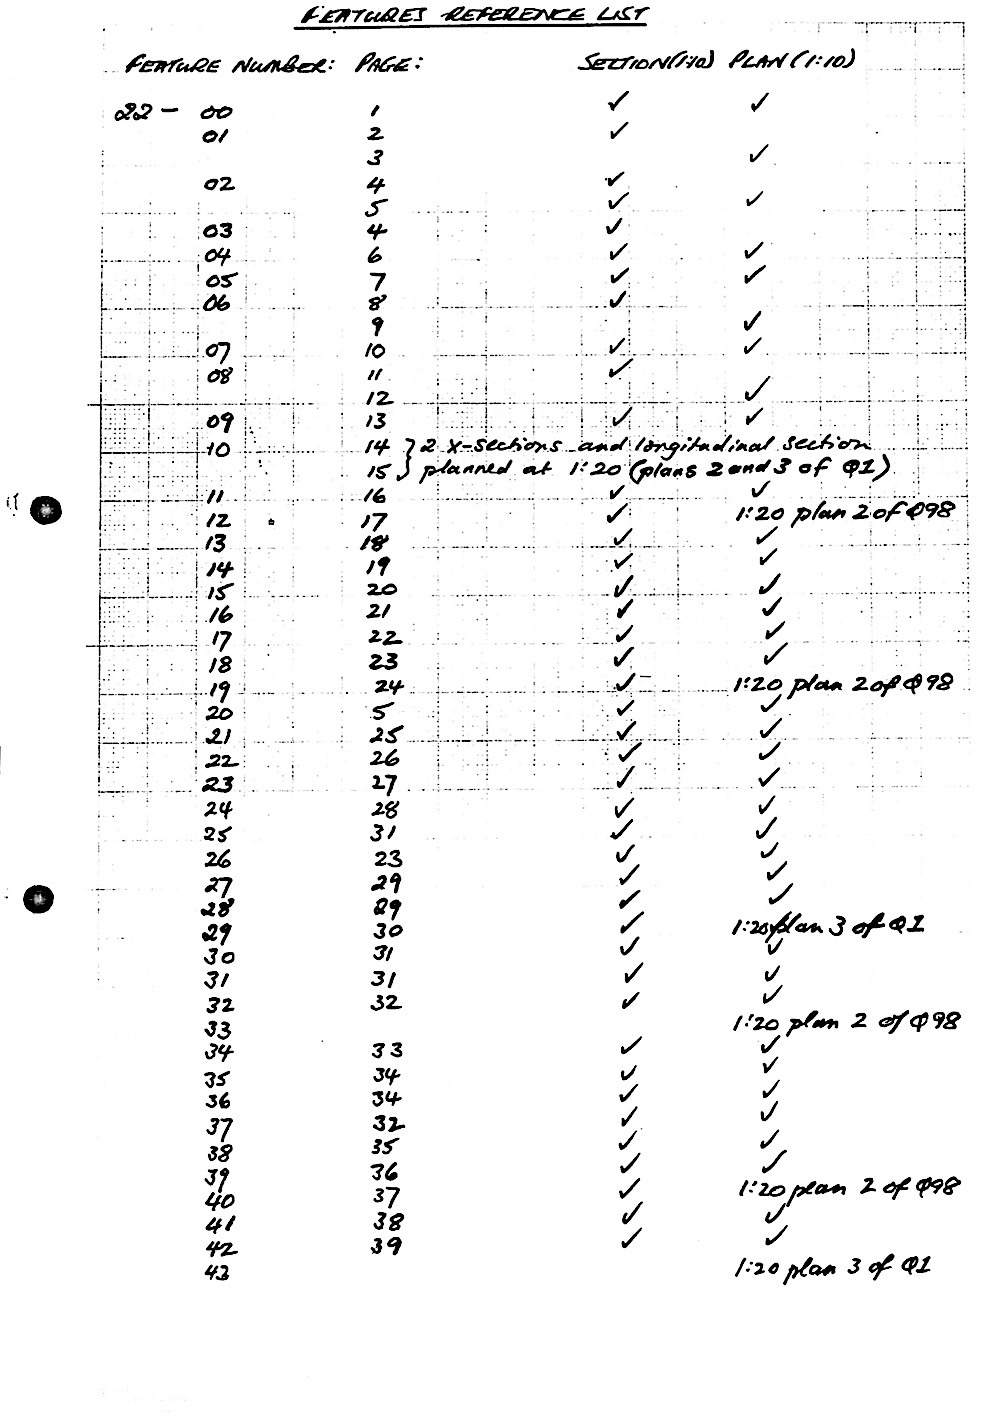 FEATURES REFERENCE LIST
FEATURE NUMBER: PAGE: SECTION(1:10) PLAN(1:10)
22- 00 1 ✓ ✓
01 2 ✓
3 ✓
02 4 ✓
5 ✓ ✓
03 4 ✓
04 6 ✓ ✓
05 7 ✓ ✓
06 8 ✓
9 ✓
07 10 ✓ ✓
08 11 ✓
12 ✓
09 13 ✓ ✓
10 14 } 2 x-sections and longitudinal section
15 } planned at 1:20 (plans 2 and 3 of Q1)
11 16 ✓ ✓
12 17 ✓ 1:20 plan 2 of Q98
13 18 ✓ ✓
14 19 ✓ ✓
15 20 ✓ ✓
16 21 ✓ ✓
17 22 ✓ ✓
18 23 ✓ ✓
19 24 ✓ 1:20 plan 2 of Q98
20 5 ✓ ✓
21 25 ✓ ✓
22 26 ✓ ✓
23 27 ✓ ✓
24 28 ✓ ✓
25 31 ✓ ✓
26 23 ✓ ✓
27 29 ✓ ✓
28 29 ✓ ✓
29 30 ✓ 1:20 plan 3 of Q1
30 31 ✓ ✓
31 31 ✓ ✓
32 32 ✓ ✓
33 1:20 plan 2 of Q98
34 33 ✓ ✓
35 34 ✓ ✓
36 34 ✓ ✓
37 32 ✓ ✓
38 35 ✓ ✓
39 36 ✓ ✓
40 37 ✓ 1:20 plan 2 of Q98
41 38 ✓ ✓
42 39 ✓ ✓
43 1:20 plan 3 of Q1